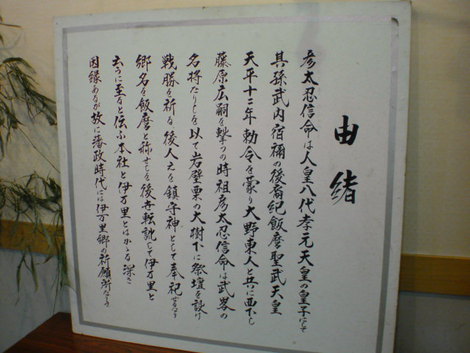 由緒
彦太忍信命は人皇八代孝元天皇の皇子にて
其孫武内宿禰の後裔紀飯麿聖武天皇
天平十二年勅令を蒙り大野東人と共に西下し
藤原広嗣を撃つの時祖彦太忍信命は武略の
名将たりしを以て岩壁栗の大樹下に祭壇を設け
戦勝を祈る後人之を鎮守神として奉祀せるなり
郷名を飯麿と称せしを後专転訛して伊万里と
云うに至ると伝ふ本社と伊万里とはかゝる深き
因縁あるが故に藩政時代には伊万里郷の祈願所なり